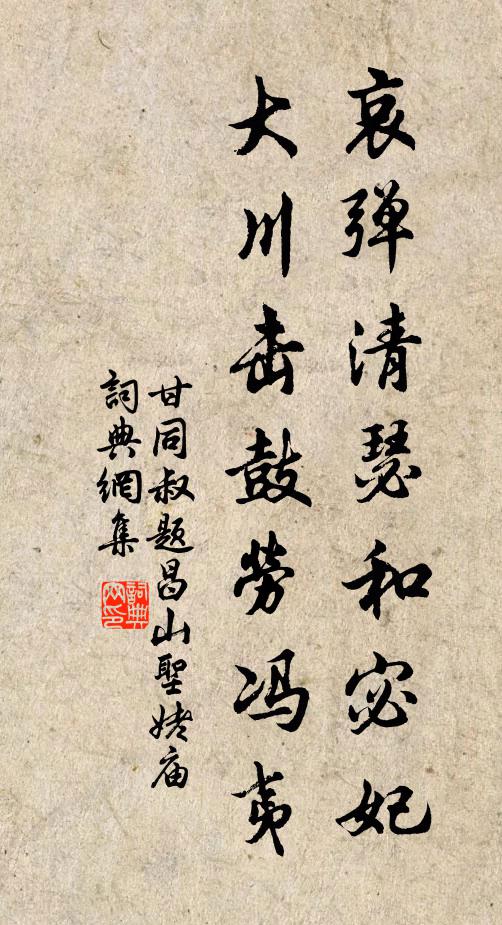 哀弹清瑟和宓妃
大川击鼓劳冯夷
甘同叔题昌山聖姥庙
詞典網集
詞典網印